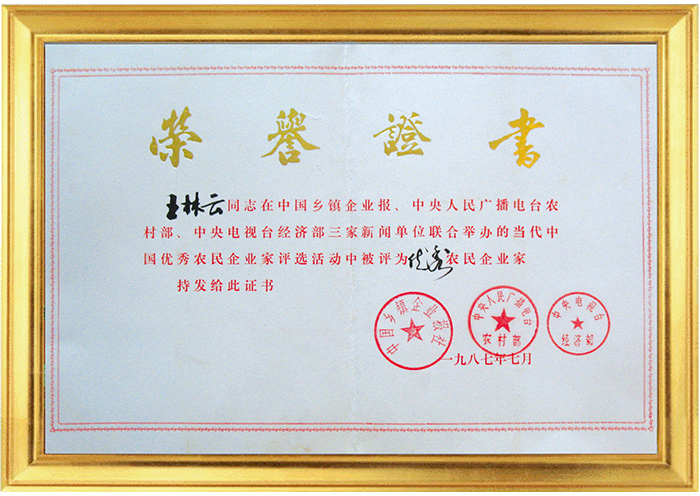 榮譽證書
王林云同志在中国乡镇企业报、中央人民广播电台农
村部、中央电视台经济部三家新闻单位联合举办的当代中
国优秀农民企业家评选活动中被评为优秀农民企业家
持发给此证书
中国乡镇企业报社
中央人民广播电台
农村部
中央电视台
经济部
一九八七年七月